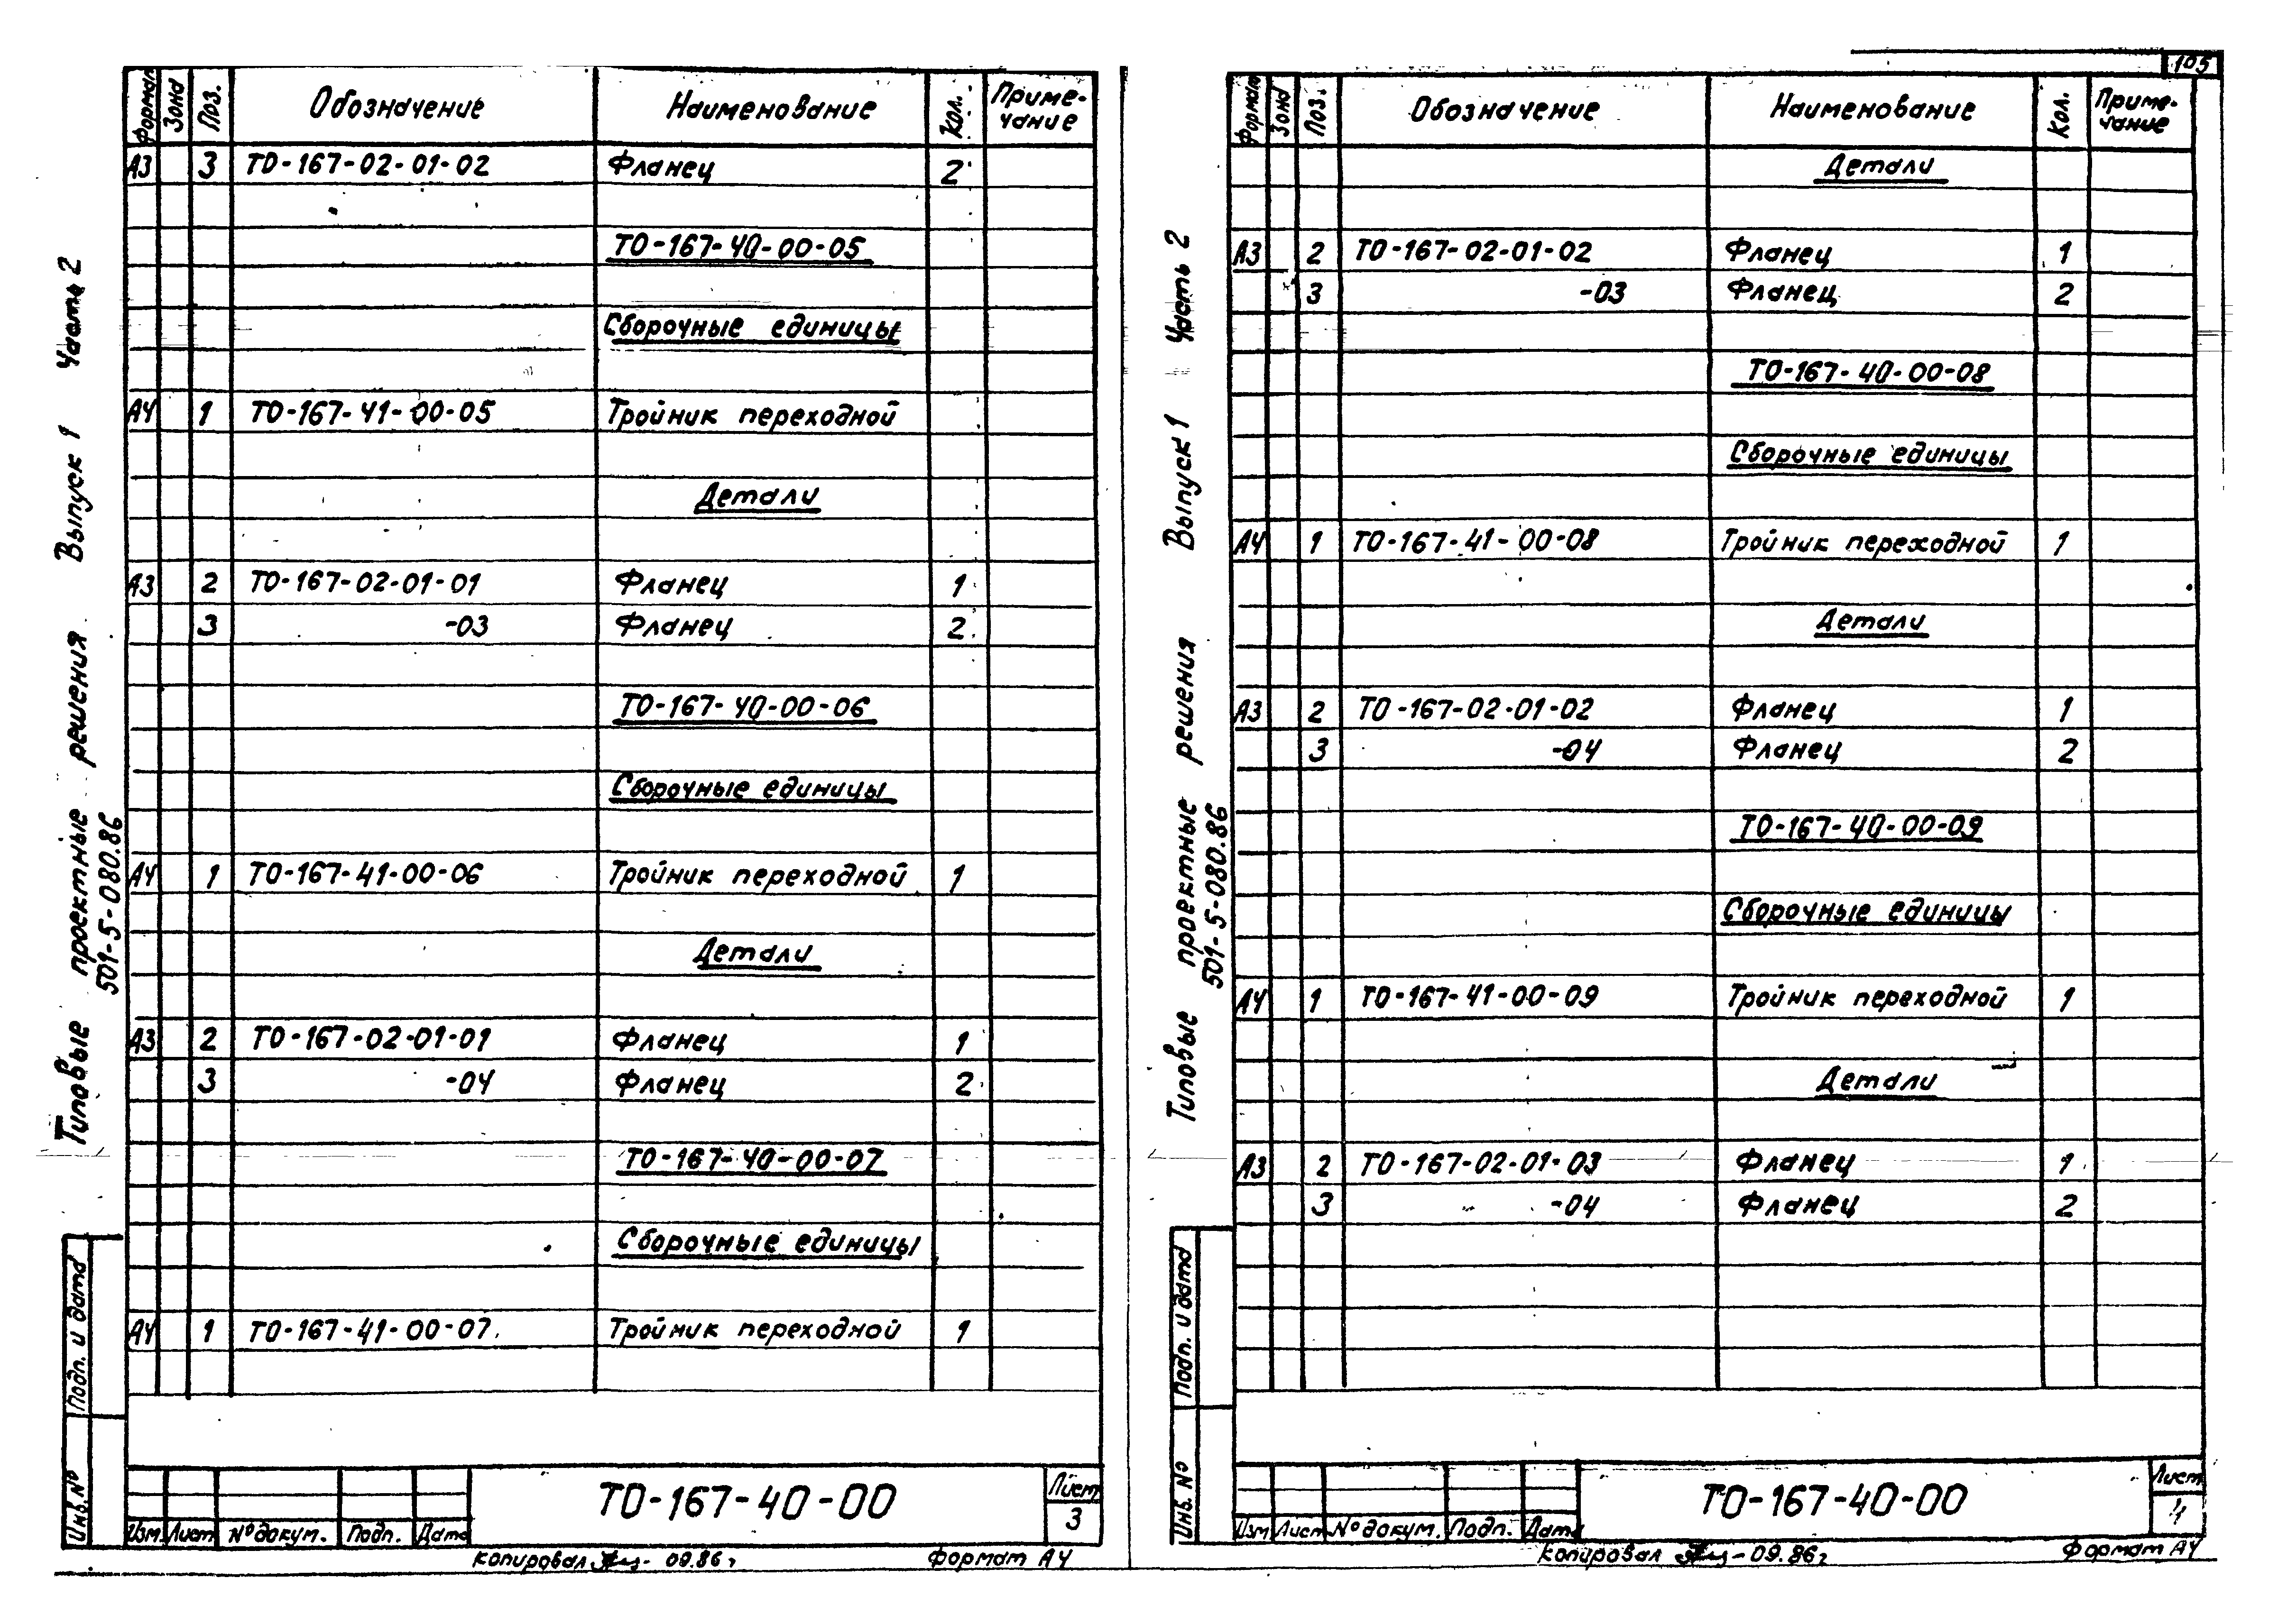 105
Формат Зона Поз. Обозначение Наименование Кол. Приме-
чание
А3 3 ТО-167-02-01-02 Фланец 2
ТО-167-40-00-05
Сборочные единицы
А4 1 ТО-167-41-00-05 Тройник переходной
Детали
А3 2 ТО-167-02-01-01 Фланец 1
3 -03 Фланец 2
ТО-167-40-00-06
Сборочные единицы
А4 1 ТО-167-41-00-06 Тройник переходной 1
Детали
А3 2 ТО-167-02-01-01 Фланец 1
3 -04 Фланец 2
ТО-167-40-00-07
Сборочные единицы
А4 1 ТО-167-41-00-07 Тройник переходной 1
Типовые проектные решения Выпуск 1 Часть 2
501-5-080.86
Подп. и дата
Инв. №
ТО-167-40-00
Лист
3
Изм. Лист № докум. Подп. Дата
Копировал 09.86г Формат А4
Формат Зона Поз. Обозначение Наименование Кол. Приме-
чание
Детали
А3 2 ТО-167-02-01-02 Фланец 1
3 -03 Фланец 2
ТО-167-40-00-08
Сборочные единицы
А4 1 ТО-167-41-00-08 Тройник переходной 1
Детали
А3 2 ТО-167-02-01-02 Фланец 1
3 -04 Фланец 2
ТО-167-40-00-09
Сборочные единицы
А4 1 ТО-167-41-00-09 Тройник переходной 1
Детали
А3 2 ТО-167-02-01-03 Фланец 1
3 -04 Фланец 2
Типовые проектные решения Выпуск 1 Часть 2
501-5-080.86
Подп. и дата
Инв. №
ТО-167-40-00
Лист
4
Изм Лист № докум. Подп. Дата
Копировал 09.86г Формат А4